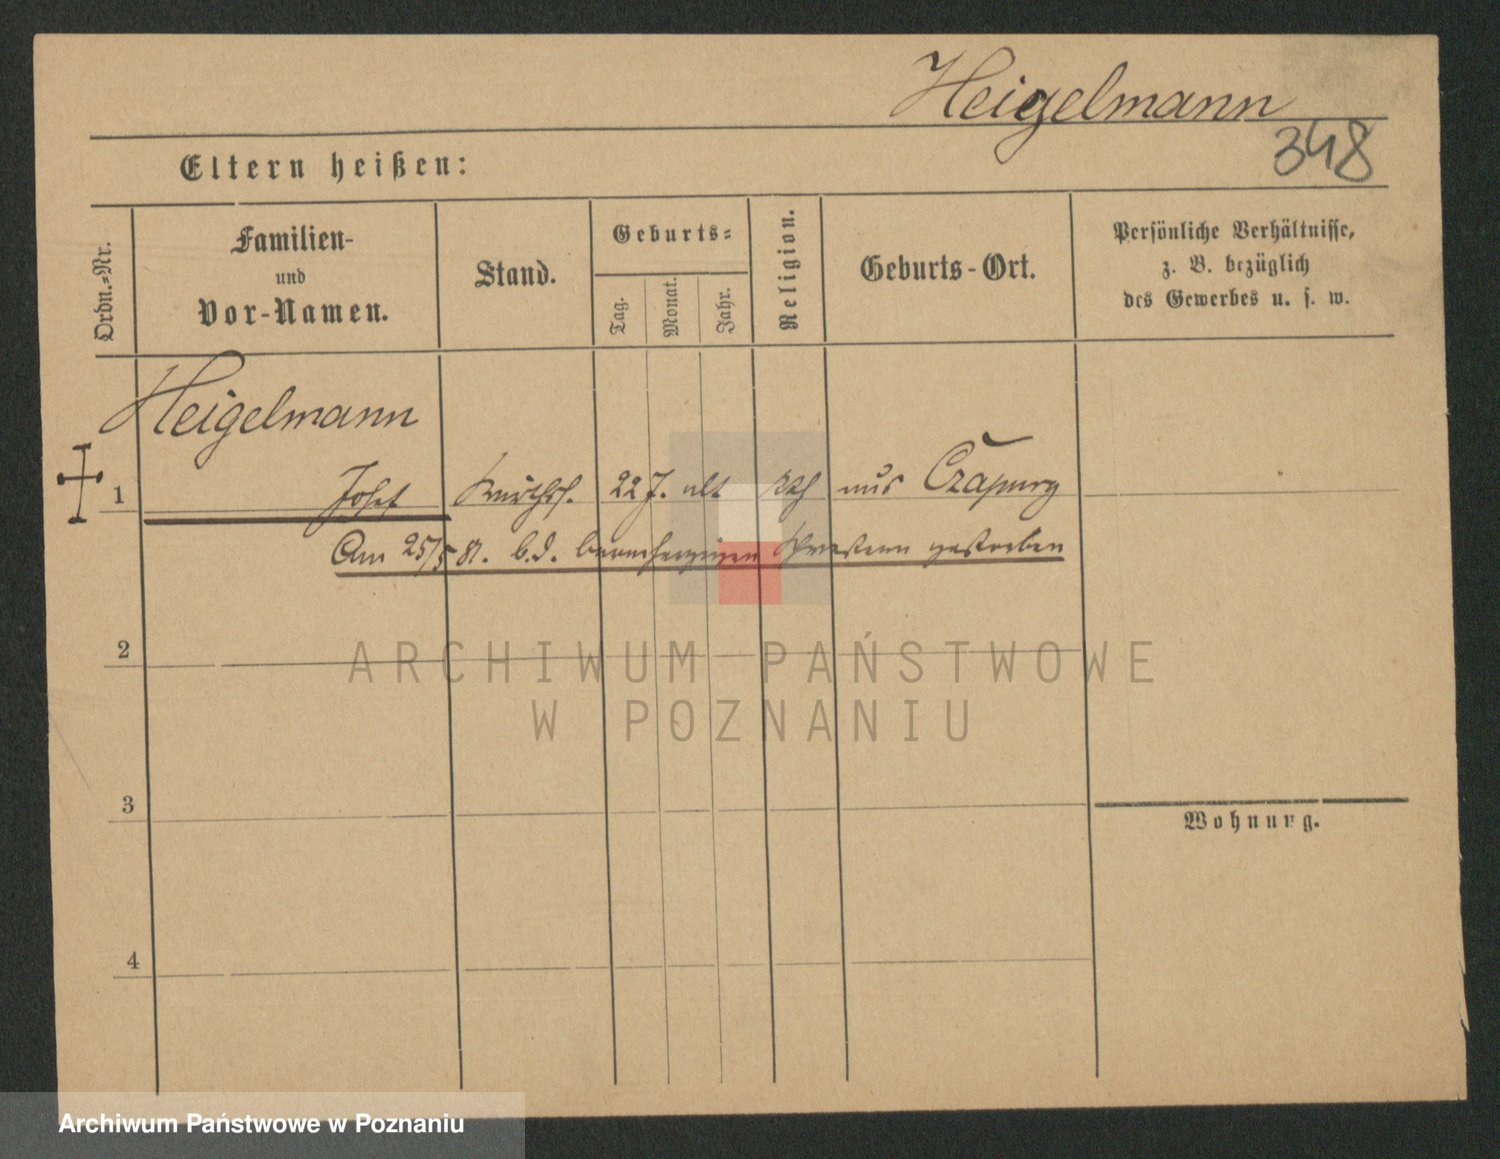 Heigelmann
348
Eltern heißen:
Ordn.-Nr.
Familien-
und
Vor-Namen.
Stand.
Geburts-
Tag.
Monat.
Jahr.
Religion.
Geburts-Ort.
Persönliche Verhältnisse,
z. B. bezüglich
des Gewerbes u. s. w.
Heigelmann
1 Josef 22 J. alt kth aus Czapury
Am 25/5 81. b. d. barmherzigen Schwestern gestorben
2
ARCHIWUM PAŃSTWOWE
W POZNANIU
3
Wohnung.
4
Archiwum Państwowe w Poznaniu